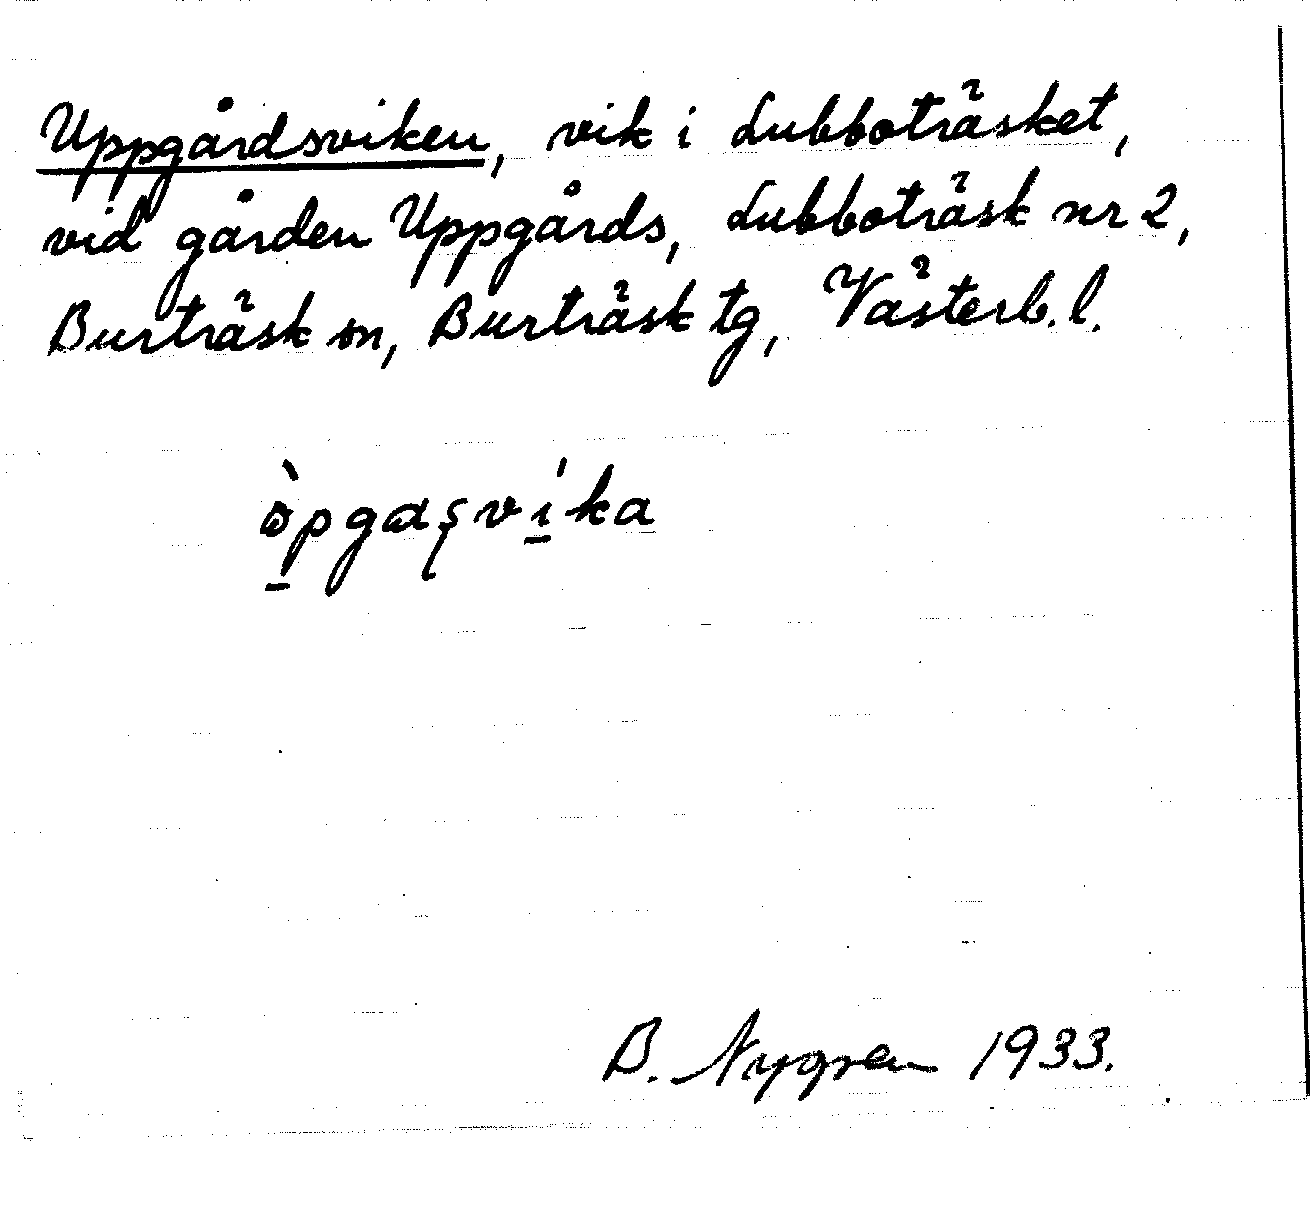 Uppgårdsviken, vik i Lubboträsket,
vid gården Uppgårds, Lubboträsk nr 2,
Burträsk sn, Burträsk tg, Västerb. l.
B. Nygren 1933.